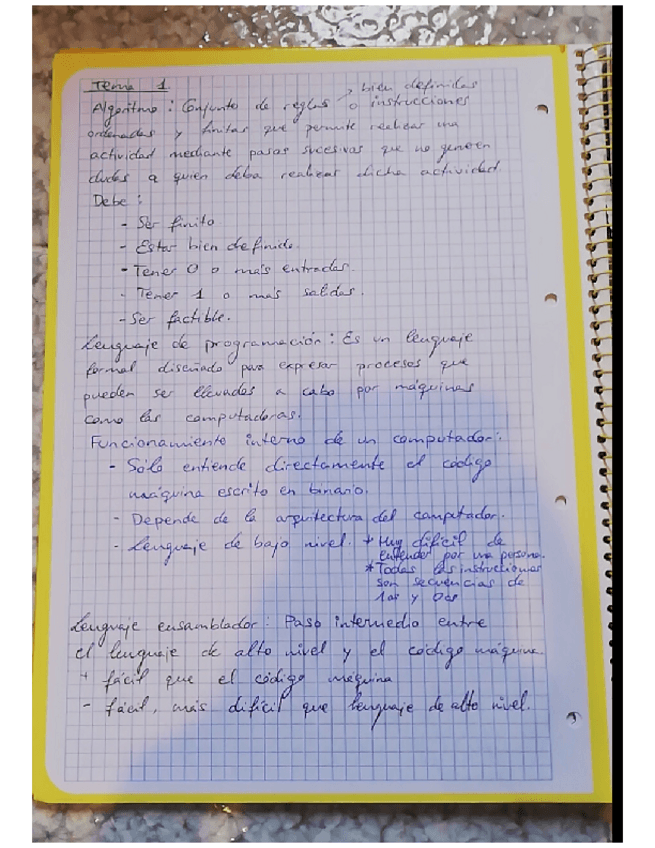 Tema 1
bien definidas
Algoritmo: Conjunto de reglas o instrucciones
ordenadas y finitas que permite realizar una
actividad mediante pasos sucesivos que no generen
dudas a quien deba realizar dicha actividad.
Debe:
- Ser finito
- Estar bien definido.
- Tener 0 o más entradas.
- Tener 1 o más salidas.
- Ser factible.
Lenguaje de programación: Es un lenguaje
formal diseñado para expresar procesos que
pueden ser llevados a cabo por máquinas
como las computadoras.
Funcionamiento interno de un computador:
- Sólo entiende directamente el código
máquina escrito en binario.
- Depende de la arquitectura del computador.
- Lenguaje de bajo nivel. * Muy difícil de
entender por una persona.
* Todas las instrucciones
son secuencias de
1os y 0os
Lenguaje ensamblador: Paso intermedio entre
el lenguaje de alto nivel y el código máquina.
+ fácil que el código máquina
- fácil, más difícil que lenguaje de alto nivel.